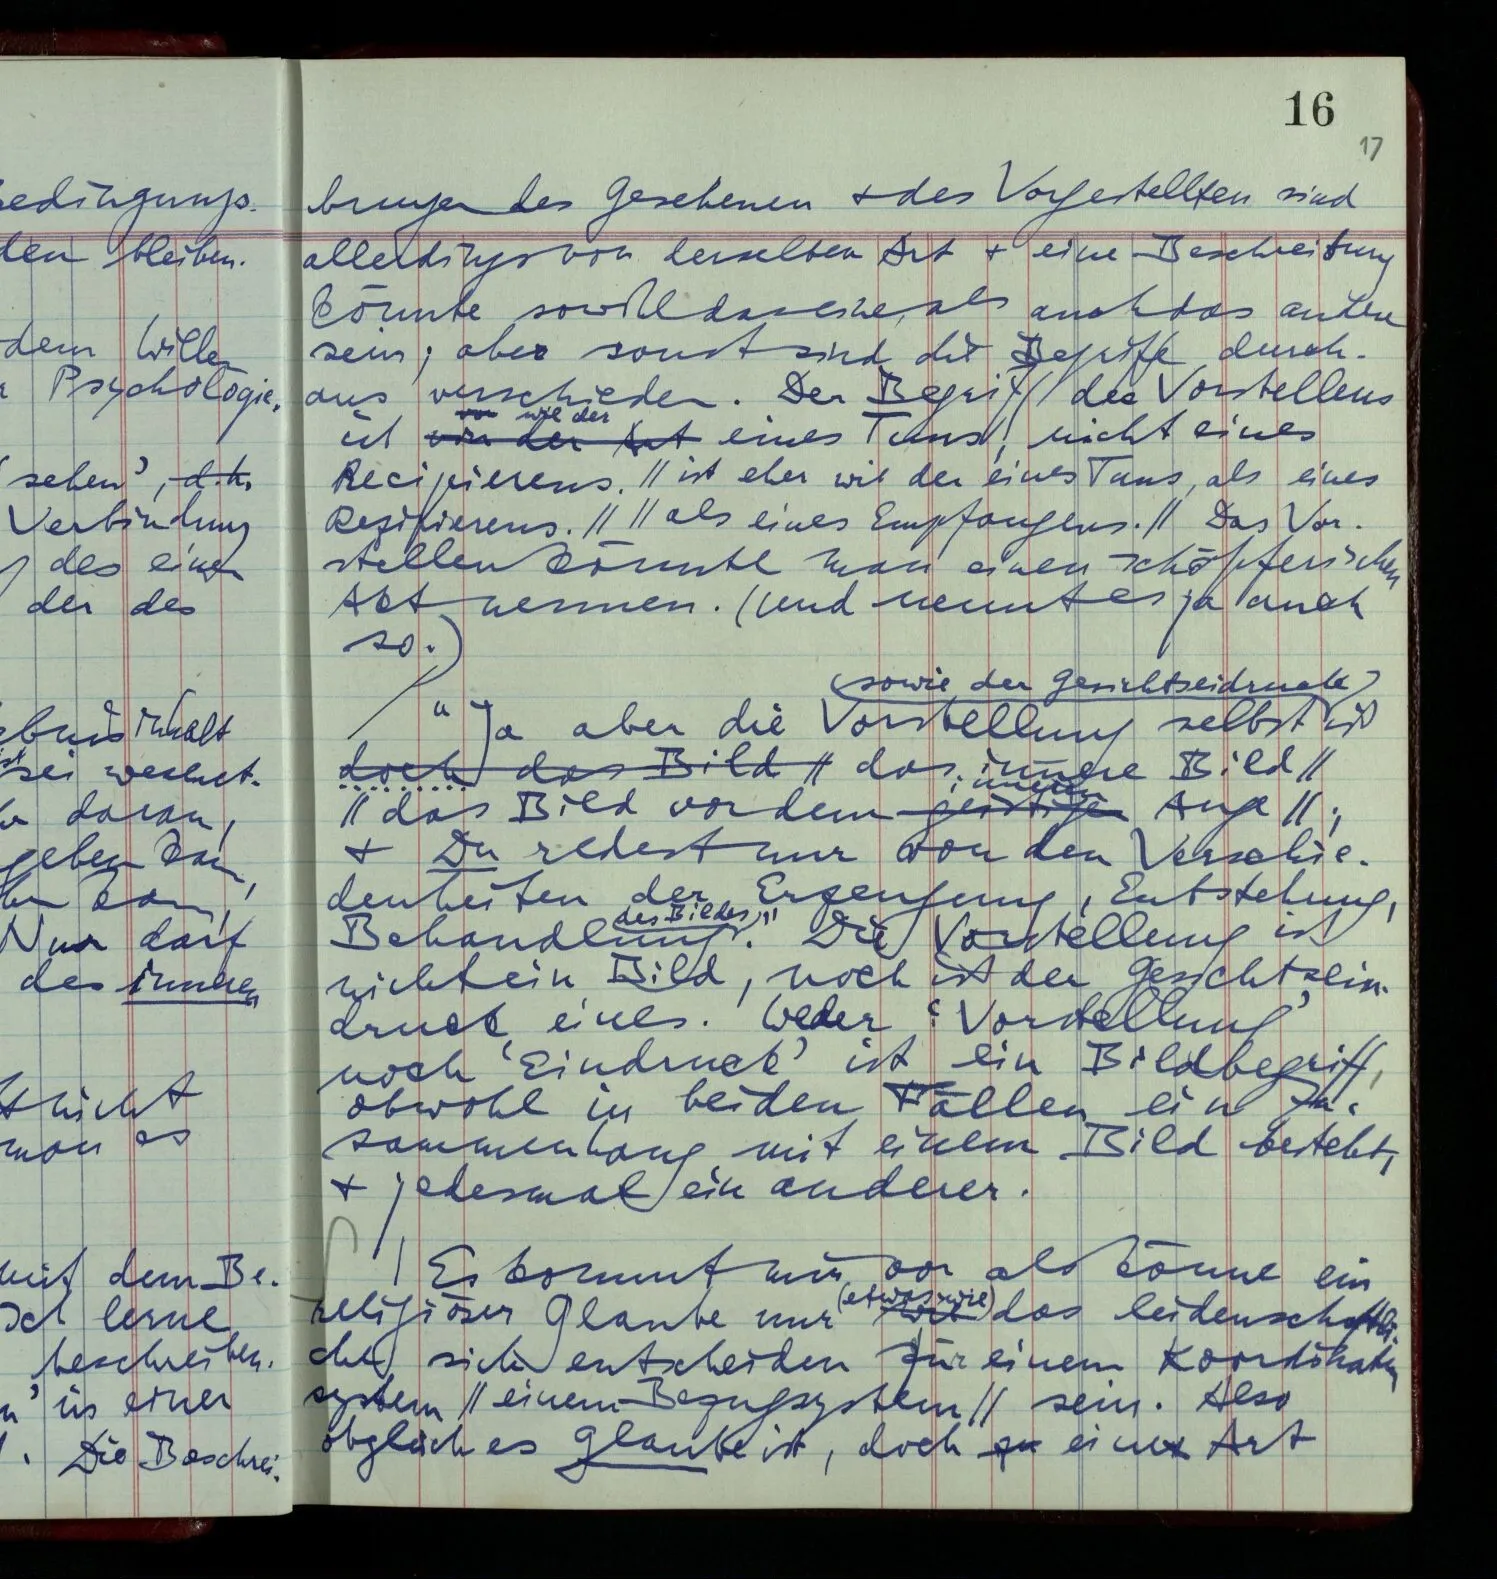 16
17
edingungs-
den bleiben.
dem Willen
Psychologie.
sehen', d.h.
Verbindung
des einen
der des
ebnisinhalt
ist sei wesent-
daran,
geben kann,
kann,
Nur darf
des inneren
nicht
man es
mit dem Be-
Ich lerne
beschreiben.
in einer
Die Beschrei-
bungen des Gesehenen + des Vorgestellten sind
allerdings von derselben Art + eine Beschreibung
könnte sowohl das eine, als auch das andere
sein; aber sonst sind die Begriffe durch-
aus verschieden. Der Begriff des Vorstellens
von wie der
ist von der Art eines Tuns, nicht eines
Recipierens. // ist eher wie der eines Tuns, als eines
Rezipierens. // // als eines Empfangens. // Das Vor-
stellen könnte man einen schöpferischen
Akt nennen. (Und nennt es ja auch
so.)
(sowie der Gesichtseidruck)
"Ja aber die Vorstellung selbst ist
doch das Bild // das innere Bild //
inneren
// das Bild vor dem geistigen Auge //;
+ Du redest nur von den Verschie-
denheiten der Erzeugung, Entstehung,
des Bildes,"
Behandlung." Die Vorstellung ist
nicht ein Bild, noch ist der Gesichtsein-
druck eines. Weder 'Vorstellung'
noch 'Eindruck' ist ein Bildbegriff,
obwohl in beiden Fällen ein Zu-
sammenhang mit einem Bild besteht,
+ jedesmal ein anderer.
| Es kommt mir vor als könne ein
(etwas wie)
religiöser Glaube nur das leidenschaftli-
che sich entscheiden für einem Koordinaten
system // einem Bezugsystem // sein. Also
obgleich es Glaube ist, doch eine Art